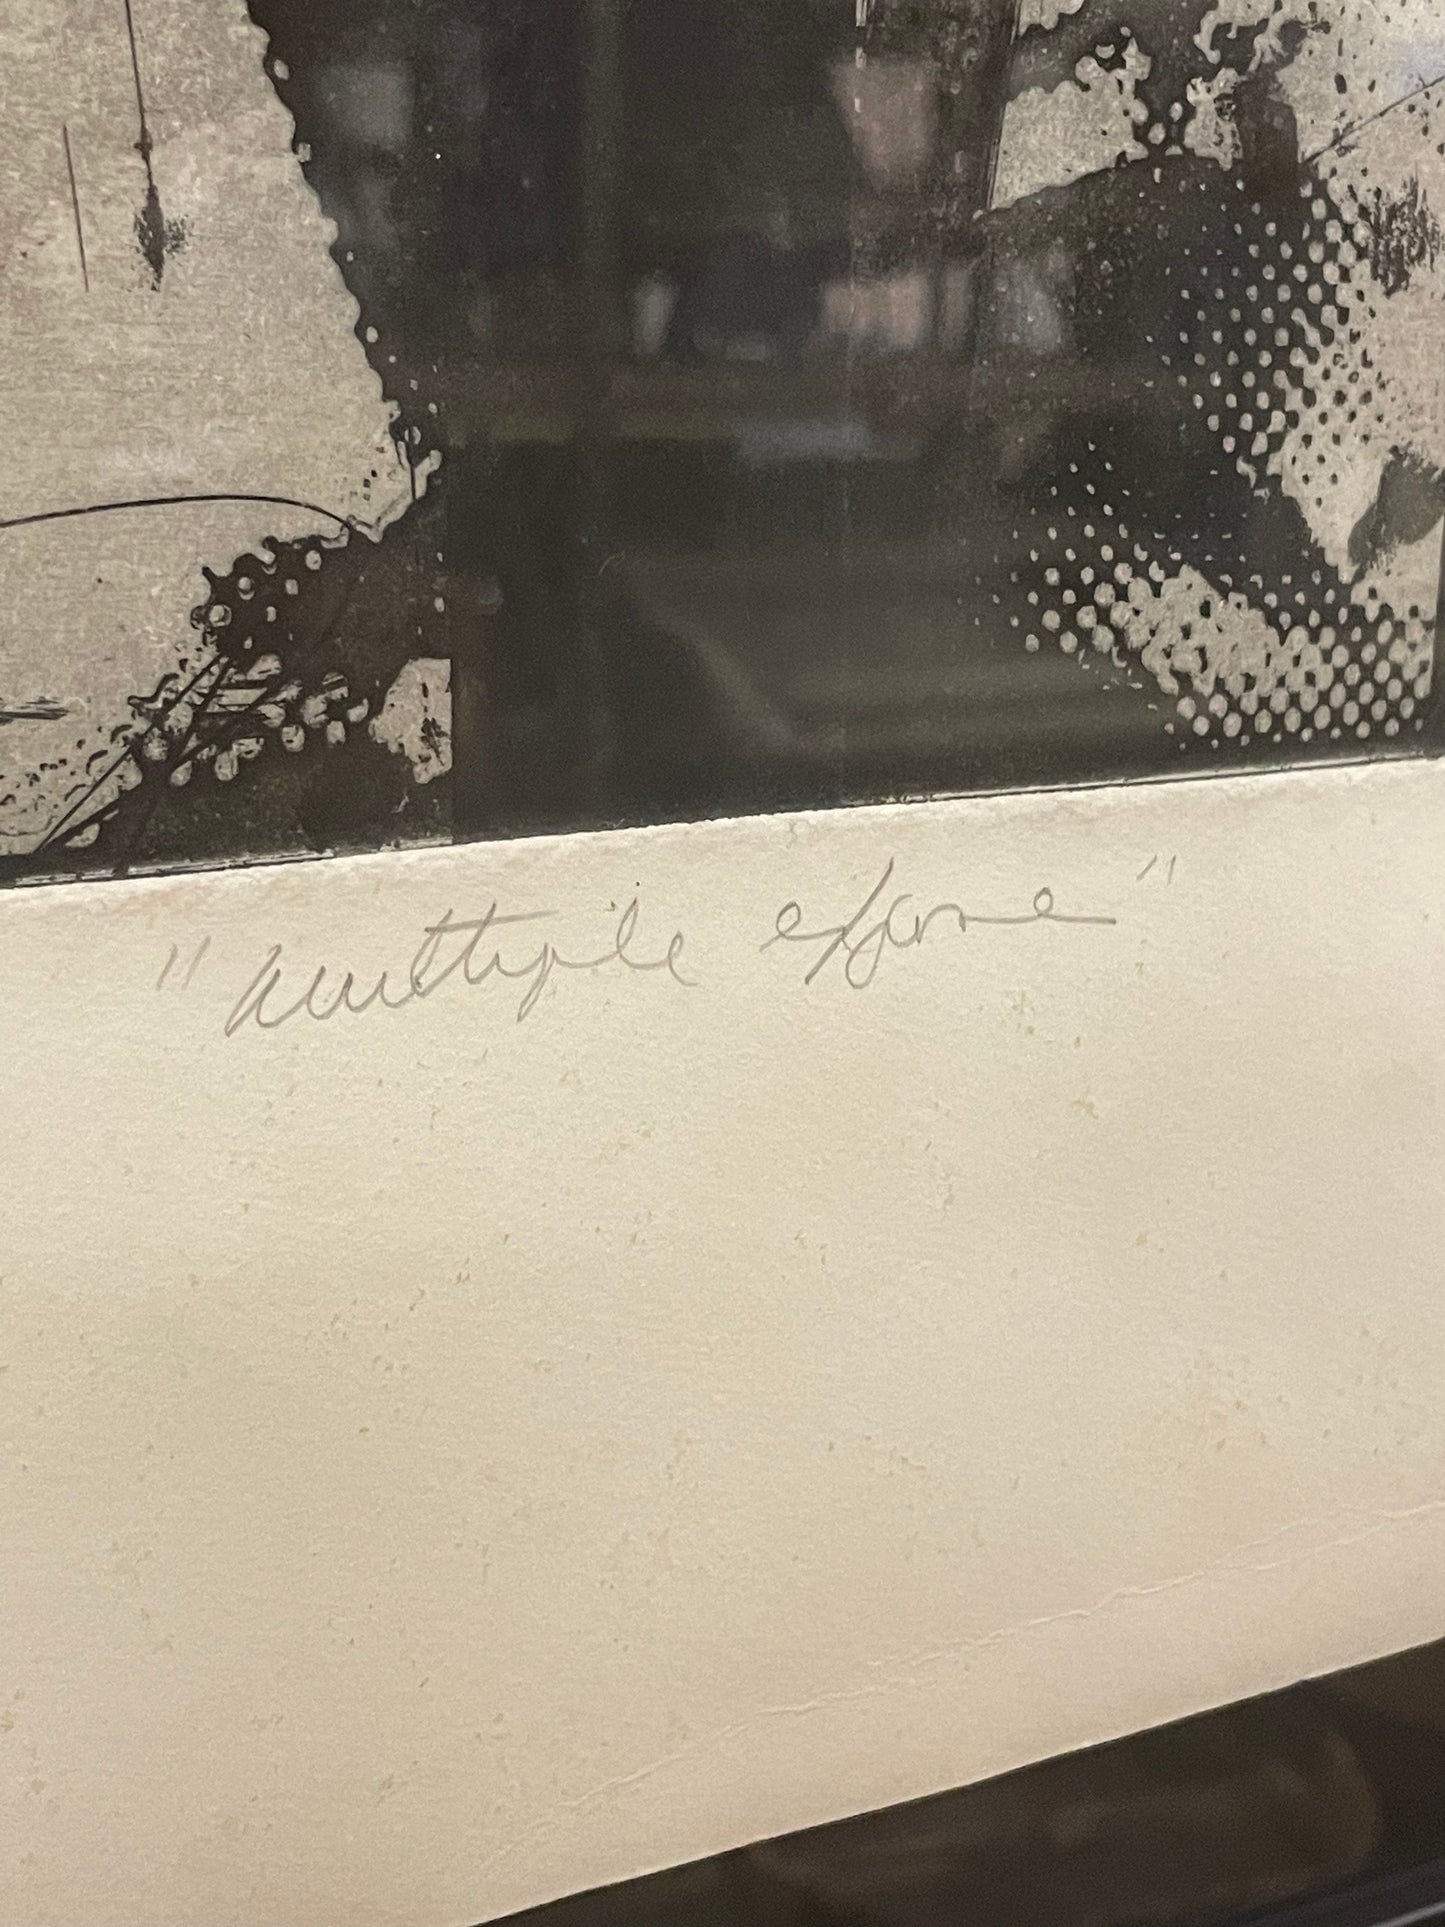 "Multiple expose"